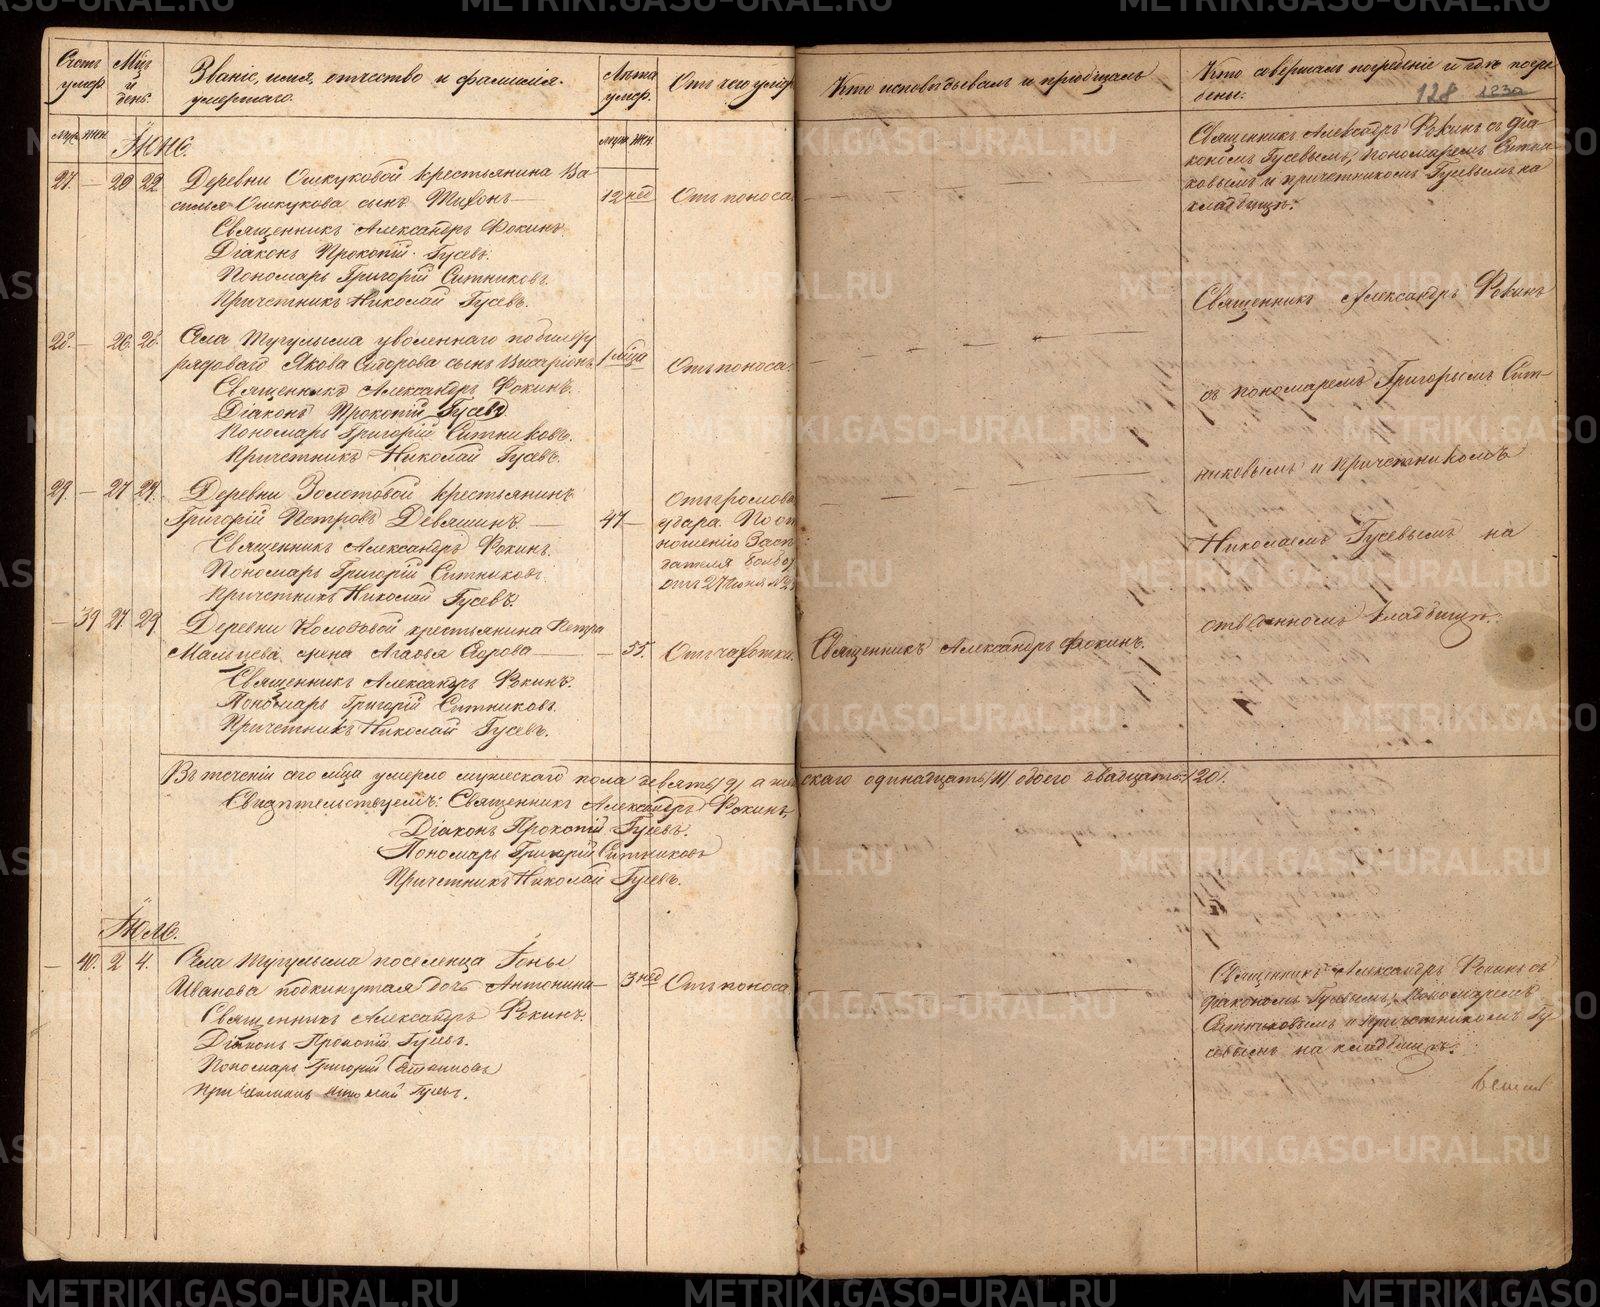 Счетъ умерш.
Мцъ и день.
Званіе, имя, отчество и фамилія
умершаго.
Лѣта умерш.
Отъ чего умеръ
Кто исповѣдывалъ и пріобщалъ
Кто совершалъ погребеніе и гдѣ погре-
бены.
128 123а
муж. жен.
муж. жен.
Іюнь.
27. — 20 22
Деревни Ошкуковой крестьянина Ва-
силія Ошкукова сынъ Тихонъ —
12 нед
Отъ поноса
Священникъ Александръ Фокинъ.
Діаконъ Прокопій Гусевъ.
Пономарь Григорій Ситниковъ.
Причетникъ Николай Гусевъ.
28. — 26. 28.
Села Тугулыма уволеннаго по билету
рядоваго Якова Сидорова сынъ Висаріонъ
1 мца
Отъ поноса.
Священникъ Александръ Фокинъ.
Діаконъ Прокопій Гусевъ
Пономарь Григорій Ситниковъ.
Причетникъ Николай Гусевъ.
29. — 27 29.
Деревни Золотовой крестьянинъ
Григорій Петровъ Девяшинъ. —
47 —
Отъ громова
удара. По от
ношенію Засѣ
дателя
отъ 27 Іюня №
Священникъ Александръ Фокинъ.
Пономарь Григорій Ситниковъ.
Причетникъ Николай Гусевъ.
— 39 27. 29
Деревни Коловой крестьянина Петра
Мальцева жена Агафья Егорова —
— 55.
Отъ чахотки.
Священникъ Александръ Фокинъ.
Священникъ Александръ Фокинъ.
Пономарь Григорій Ситниковъ.
Причетникъ Николай Гусевъ.
Священникъ Александръ Фокинъ съ діа-
кономъ Гусевымъ, пономаремъ Ситни-
ковымъ и причетникомъ Гусевымъ на
кладбищѣ.
Священникъ Александръ Фокинъ
съ пономаремъ Григорьемъ Сит-
никовымъ и причетникомъ
Николаемъ Гусевымъ на
отведенномъ кладбищѣ.
Въ теченіи сего мѣца умерло мужескаго пола девять /9/ а женскаго одинадцать /11/ обоего двадцать /20/.
Свидѣтельствуемъ: Священникъ Александръ Фокинъ,
Діаконъ Прокопій Гусевъ.
Пономарь Григорій Ситниковъ
Причетникъ Николай Гусевъ.
Іюль.
— 40. 2 4.
Села Тугулыма поселенца Іоны
Иванова подкинутая дочь Антонина —
3 нед
Отъ поноса.
Священникъ Александръ Фокинъ.
Діаконъ Прокопій Гусевъ.
Пономарь Григорій Ситниковъ
Причетникъ Николай Гусевъ.
Священникъ Александръ Фокинъ съ
діакономъ Гусевымъ, пономаремъ
Ситниковымъ и причетникомъ Гу-
севымъ на кладбищѣ.
METRIKI.GASO-URAL.RU